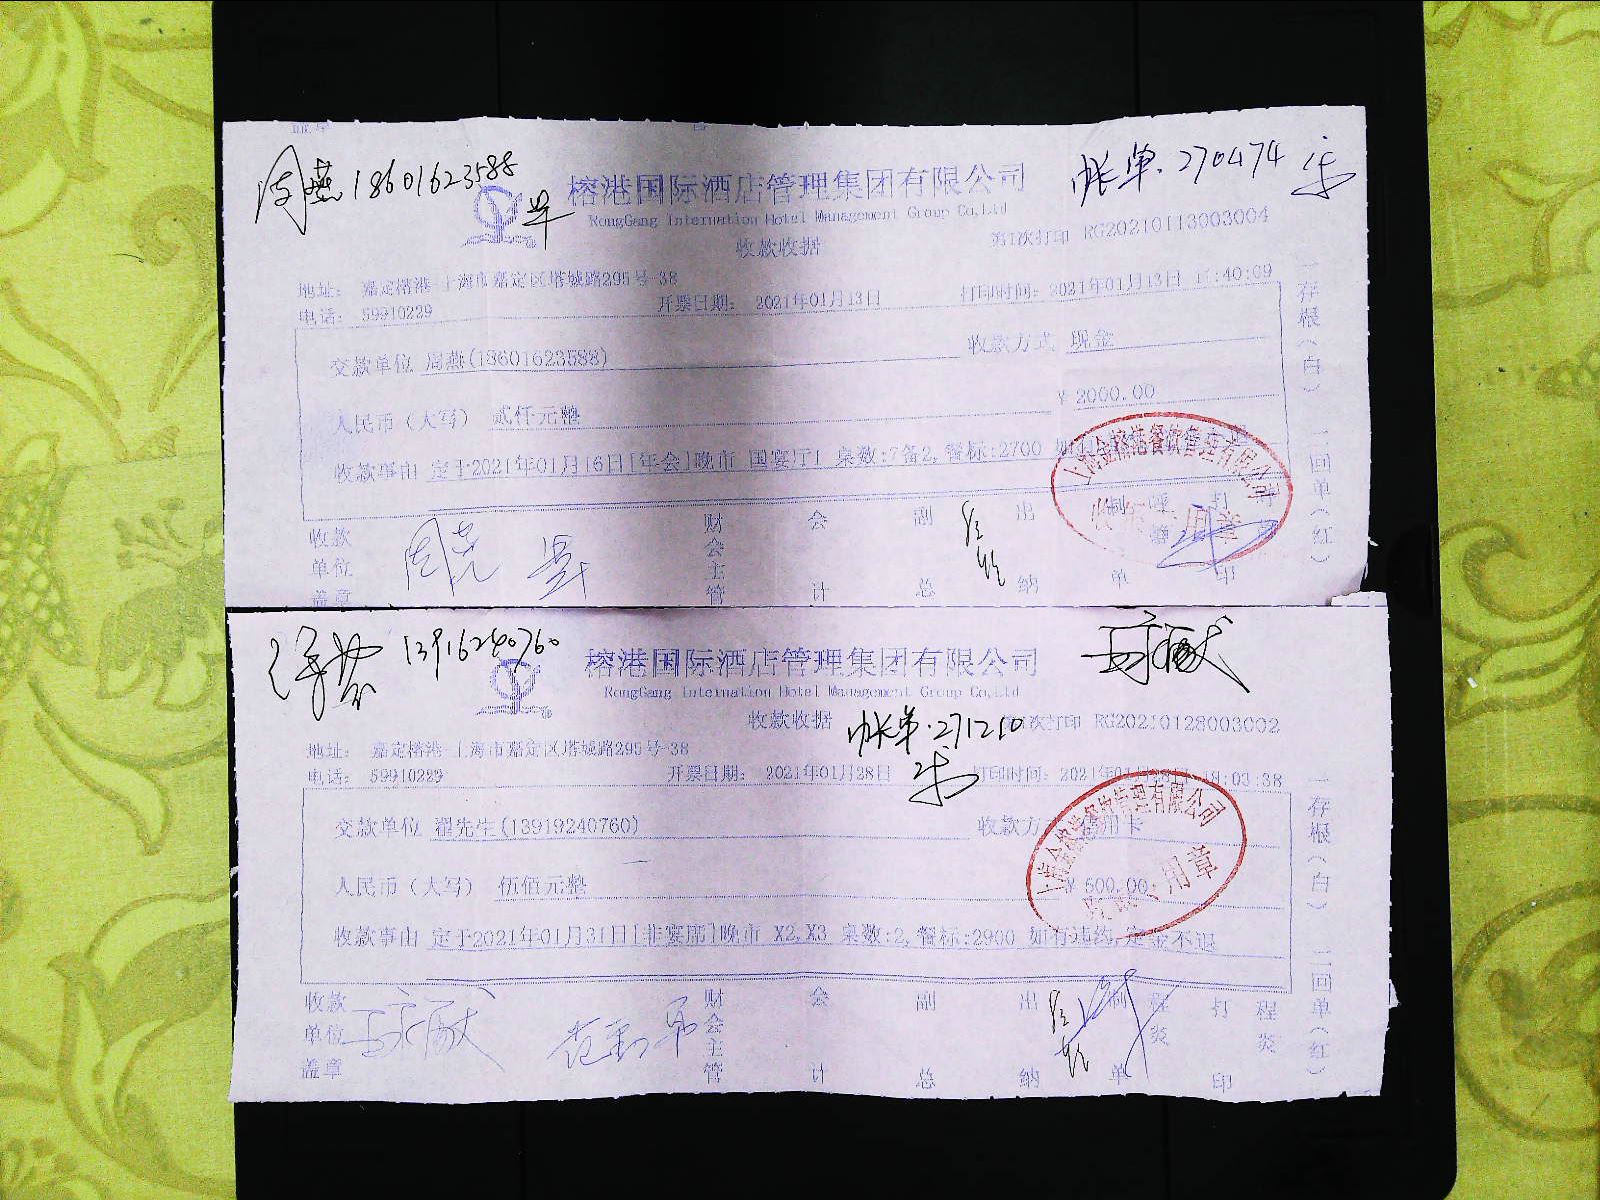 周燕18601623588
帐单.270474
榕港国际酒店管理集团有限公司
RongGang Internation Hotel Management Group Co,Ltd
收款收据
第1次打印 RG20210113003004
地址： 嘉定榕港 上海市嘉定区塔城路295号-38
电话： 59910229
开票日期： 2021年01月13日
打印时间：2021年01月13日 :40:09
交款单位 周燕(18601623588)
收款方式 现金
人民币（大写） 贰仟元整
¥ 2000.00
收款事由 定于2021年01月16日[年会]晚市 国宴厅1 桌数:7备2,餐标:2700
上海金榕港餐饮管理有限公司
收款单位盖章
周燕
财会主管
会计
副总
出纳
制单
打印
一存根（白） 二回单（红）
13916240760
榕港国际酒店管理集团有限公司
RongGang Internation Hotel Management Group Co,Ltd
收款收据
帐单.271210
第1次打印 RG20210128003002
地址： 嘉定榕港 上海市嘉定区塔城路295号-38
电话： 59910229
开票日期： 2021年01月28日
打印时间：2021年01月28日 18:03:38
交款单位 翟先生(13919240760)
收款方式 信用卡
人民币（大写） 伍佰元整
¥ 500.00
收款事由 定于2021年01月31日[非宴席]晚市 X2,X3 桌数:2,餐标:2900 如有违约,定金不退
上海金榕港餐饮管理有限公司
收款单位盖章
财会主管
会计
副总
出纳
制单
程炎
打印
程炎
一存根（白） 二回单（红）